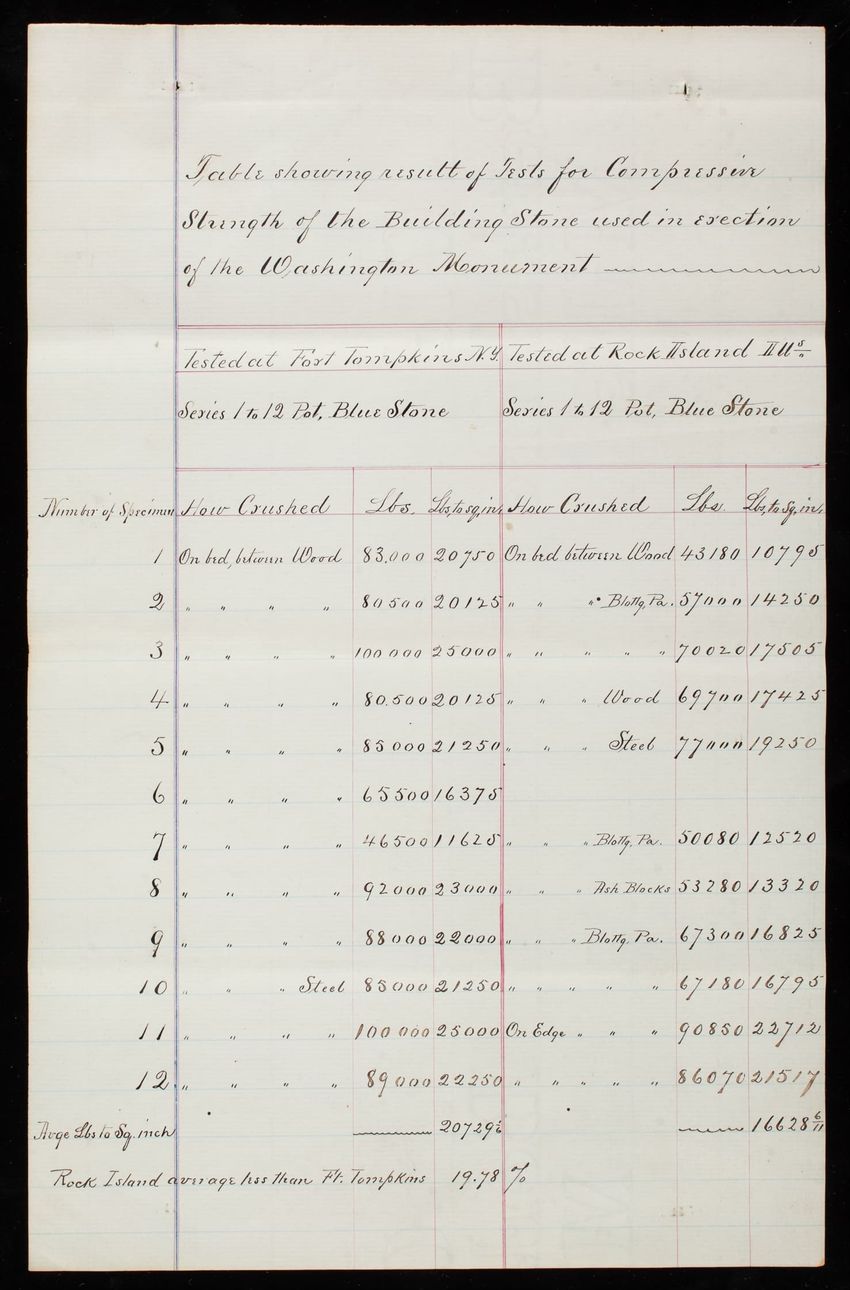 Table showing result of Tests for Compressive
Strength of the Building Stone used in erection
of the Washington Monument
Tested at Fort Tompkins N.Y. Tested at Rock Island Ills
Series 1 to 12 Pot, Blue Stone Series 1 to 12 Pot, Blue Stone
Number of Specimen How Crushed Lbs. Lbs, to sq, in, How Crushed Lbs. Lbs, to Sq, in,
1 On bed, between Wood 83.000 20750 On bed between Wood 43180 10795
2 " " " " 80500 20125 " " " Blottg, Pa. 57000 14250
3 " " " " 100000 25000 " " " " " 70020 17505
4 " " " " 80.500 20125 " " " Wood 69700 17425
5 " " " " 85000 21250 " " " Steel 77000 19250
6 " " " " 65500 16375
7 " " " " 46500 11625 " " " Blottg, Pa. 50080 12520
8 " " " " 92000 23000 " " " Ash Blocks 53280 13320
9 " " " " 88000 22000 " " " Blottg, Pa. 67300 16825
10 " " " Steel 85000 21250 " " " " " 67180 16795
11 " " " " 100000 25000 On Edge " " " 90850 22712
12 " " " " 89000 22250 " " " " " 86070 21517
Avge Lbs to Sq. inch 20729 16628 6/11
Rock Island average less than Ft. Tompkins 19.78 %